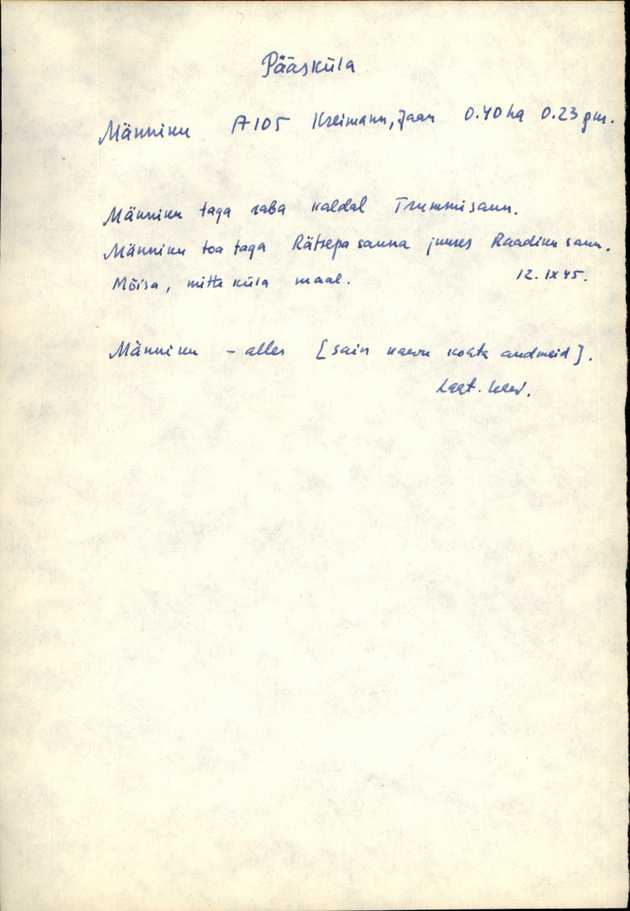 Pääsküla
Männiku A105 Kreimann, Jaan 0.40 ha 0.23 gm.
Männiku taga raba kaldal Trummisaun.
Männiku toa taga Rätsepa sauna juures Raadiku saun.
Mõisa, mitte küla maal. 12. IX 45.
Männiku – alles [sain kaevu kohta andmeid].